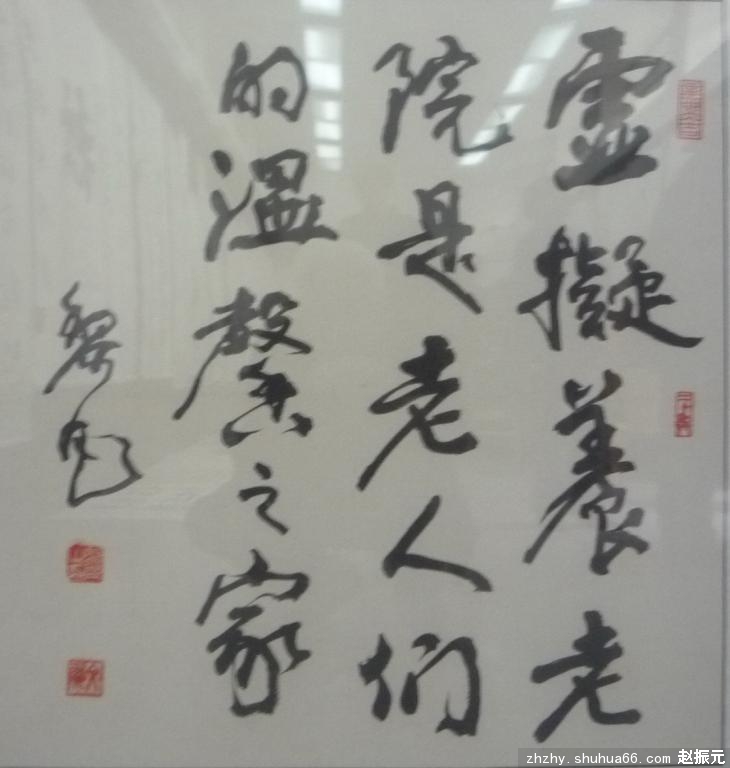 虚擬養老
院是老人们
的温馨之家
zhzhy.shuhua66.com 赵振元